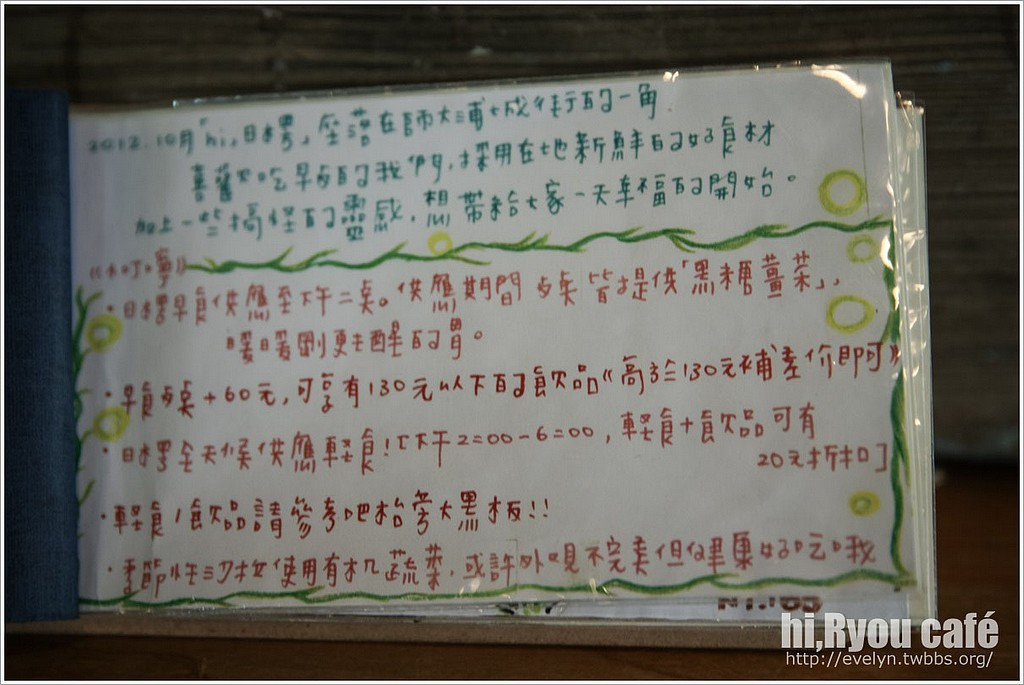 2012.10月「hi,日樑」坐落在師大浦城街的一角
喜舊愛吃早點的我們,採用在地新鮮的好食材
加上一些搞怪的靈感,想帶給大家一天幸福的開始。
《小叮嚀》
・日樑早食供應至下午二點。供應期間每桌皆提供「黑糖薑茶」,
暖暖剛更醒的胃。
・早食每桌+60元,可享有130元以下的飲品《高於130元補差價即可》
・日樑全天候供應輕食![下午2:00-6:00,輕食+飲品可有
20元折扣]
・輕食/飲品請參考吧枱旁大黑板!!
・季節性沙拉使用有机蔬菜,或許外觀不完美但健康好吃哦
hi,Ryou café
http://evelyn.twbbs.org/